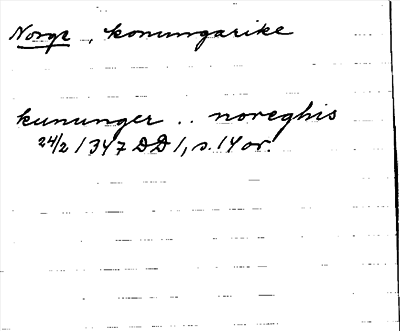 Norge, konungarike
kununger .. noreghis
24/2 1347 DD 1, s. 14 or.